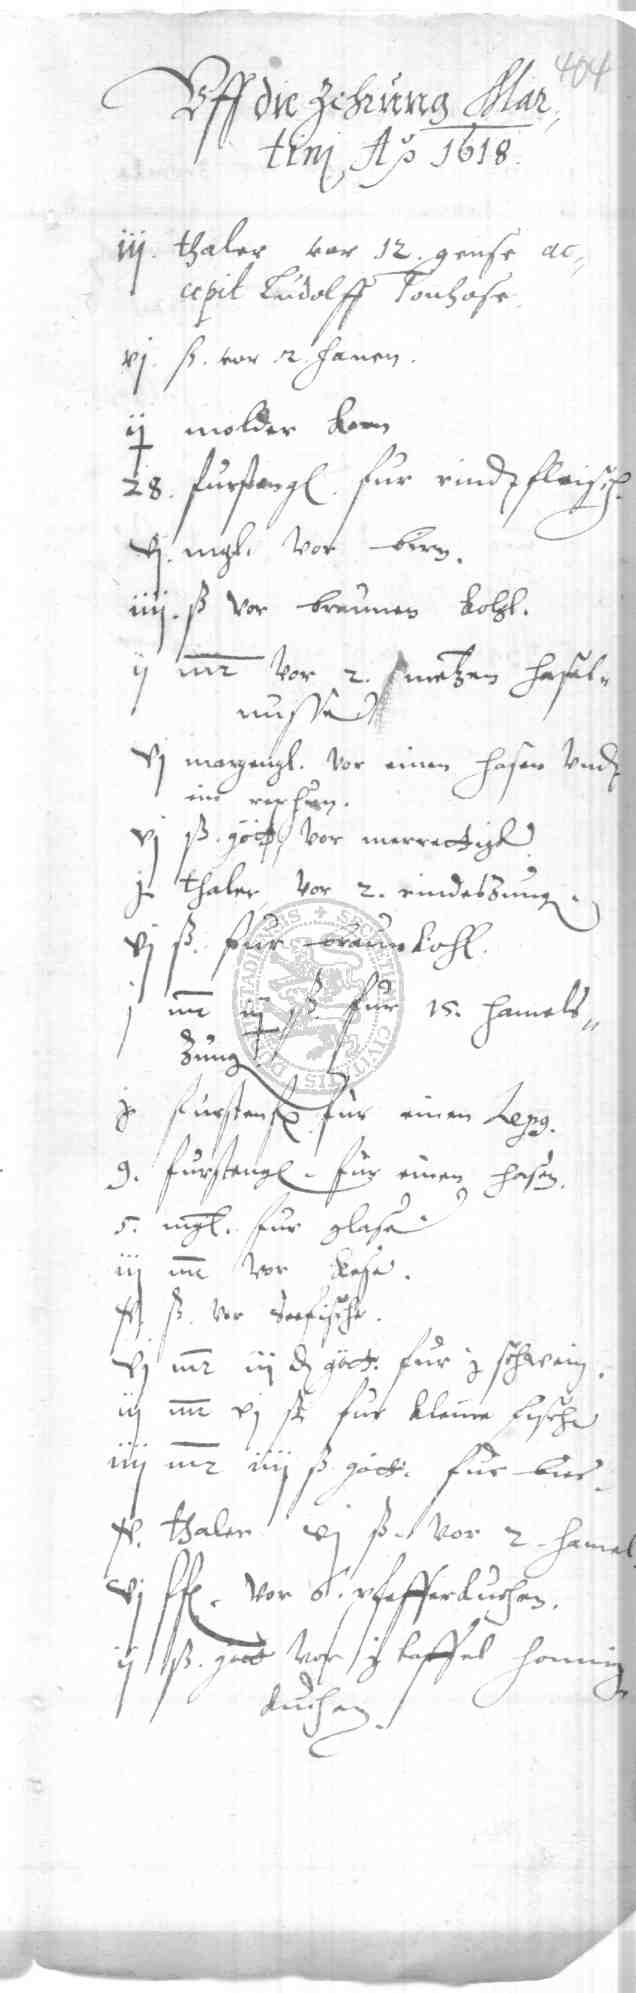 404
Uff die Zehrung Mar,
tini Ao 1618.
iij. thaler vor 12. gense ac,
cepit Ludolff Tonhose.
vj. ß. vor 2. hanen.
ij molder korn
28. furstengl. fur rindtfleisch.
vj. mgl. vor birn.
iiij. ß vor braunen kohl.
ij mr vor 2. metzen hasel„
nusse
vj margengl. vor einen hasen undt
ein rephun.
vj ß. gött. vor merrettigk
j thaler vor 2. rindeszung.
vj ß. fur braunkohl.
j mr iij ß. fur 15. hamels„
zung
fur einen
9. furstengl. fur einen hasen.
5. mgl. fur glase
iij mr vor kese.
ß. vor
vj mr iij d gött. fur j schwein.
iij mr vj ß fur kleine fische
iiij mr iiij ß gött. fur bier.
thaler vj ß. vor 2. hamel
vj vor 6. pfefferkuchen.
ij ß. gött vor j taffel honnig
kuchen.
SECRETUM CIVITATIS